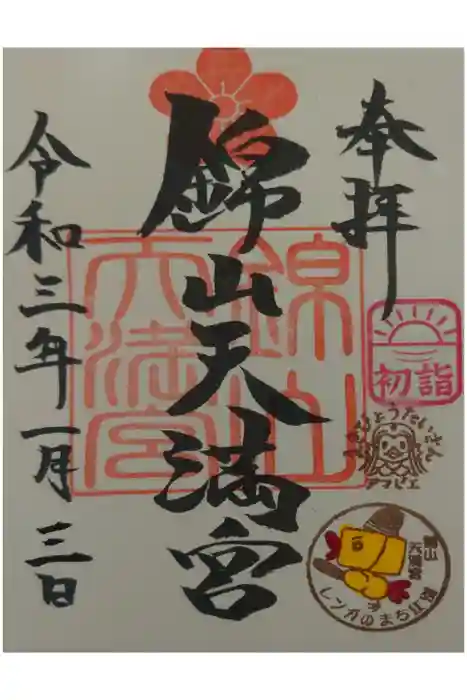 奉拝
錦山天満宮
令和三年一月三日
錦山
天満宮
初詣
アマビエ
錦山
天満宮
レンガのまち江別